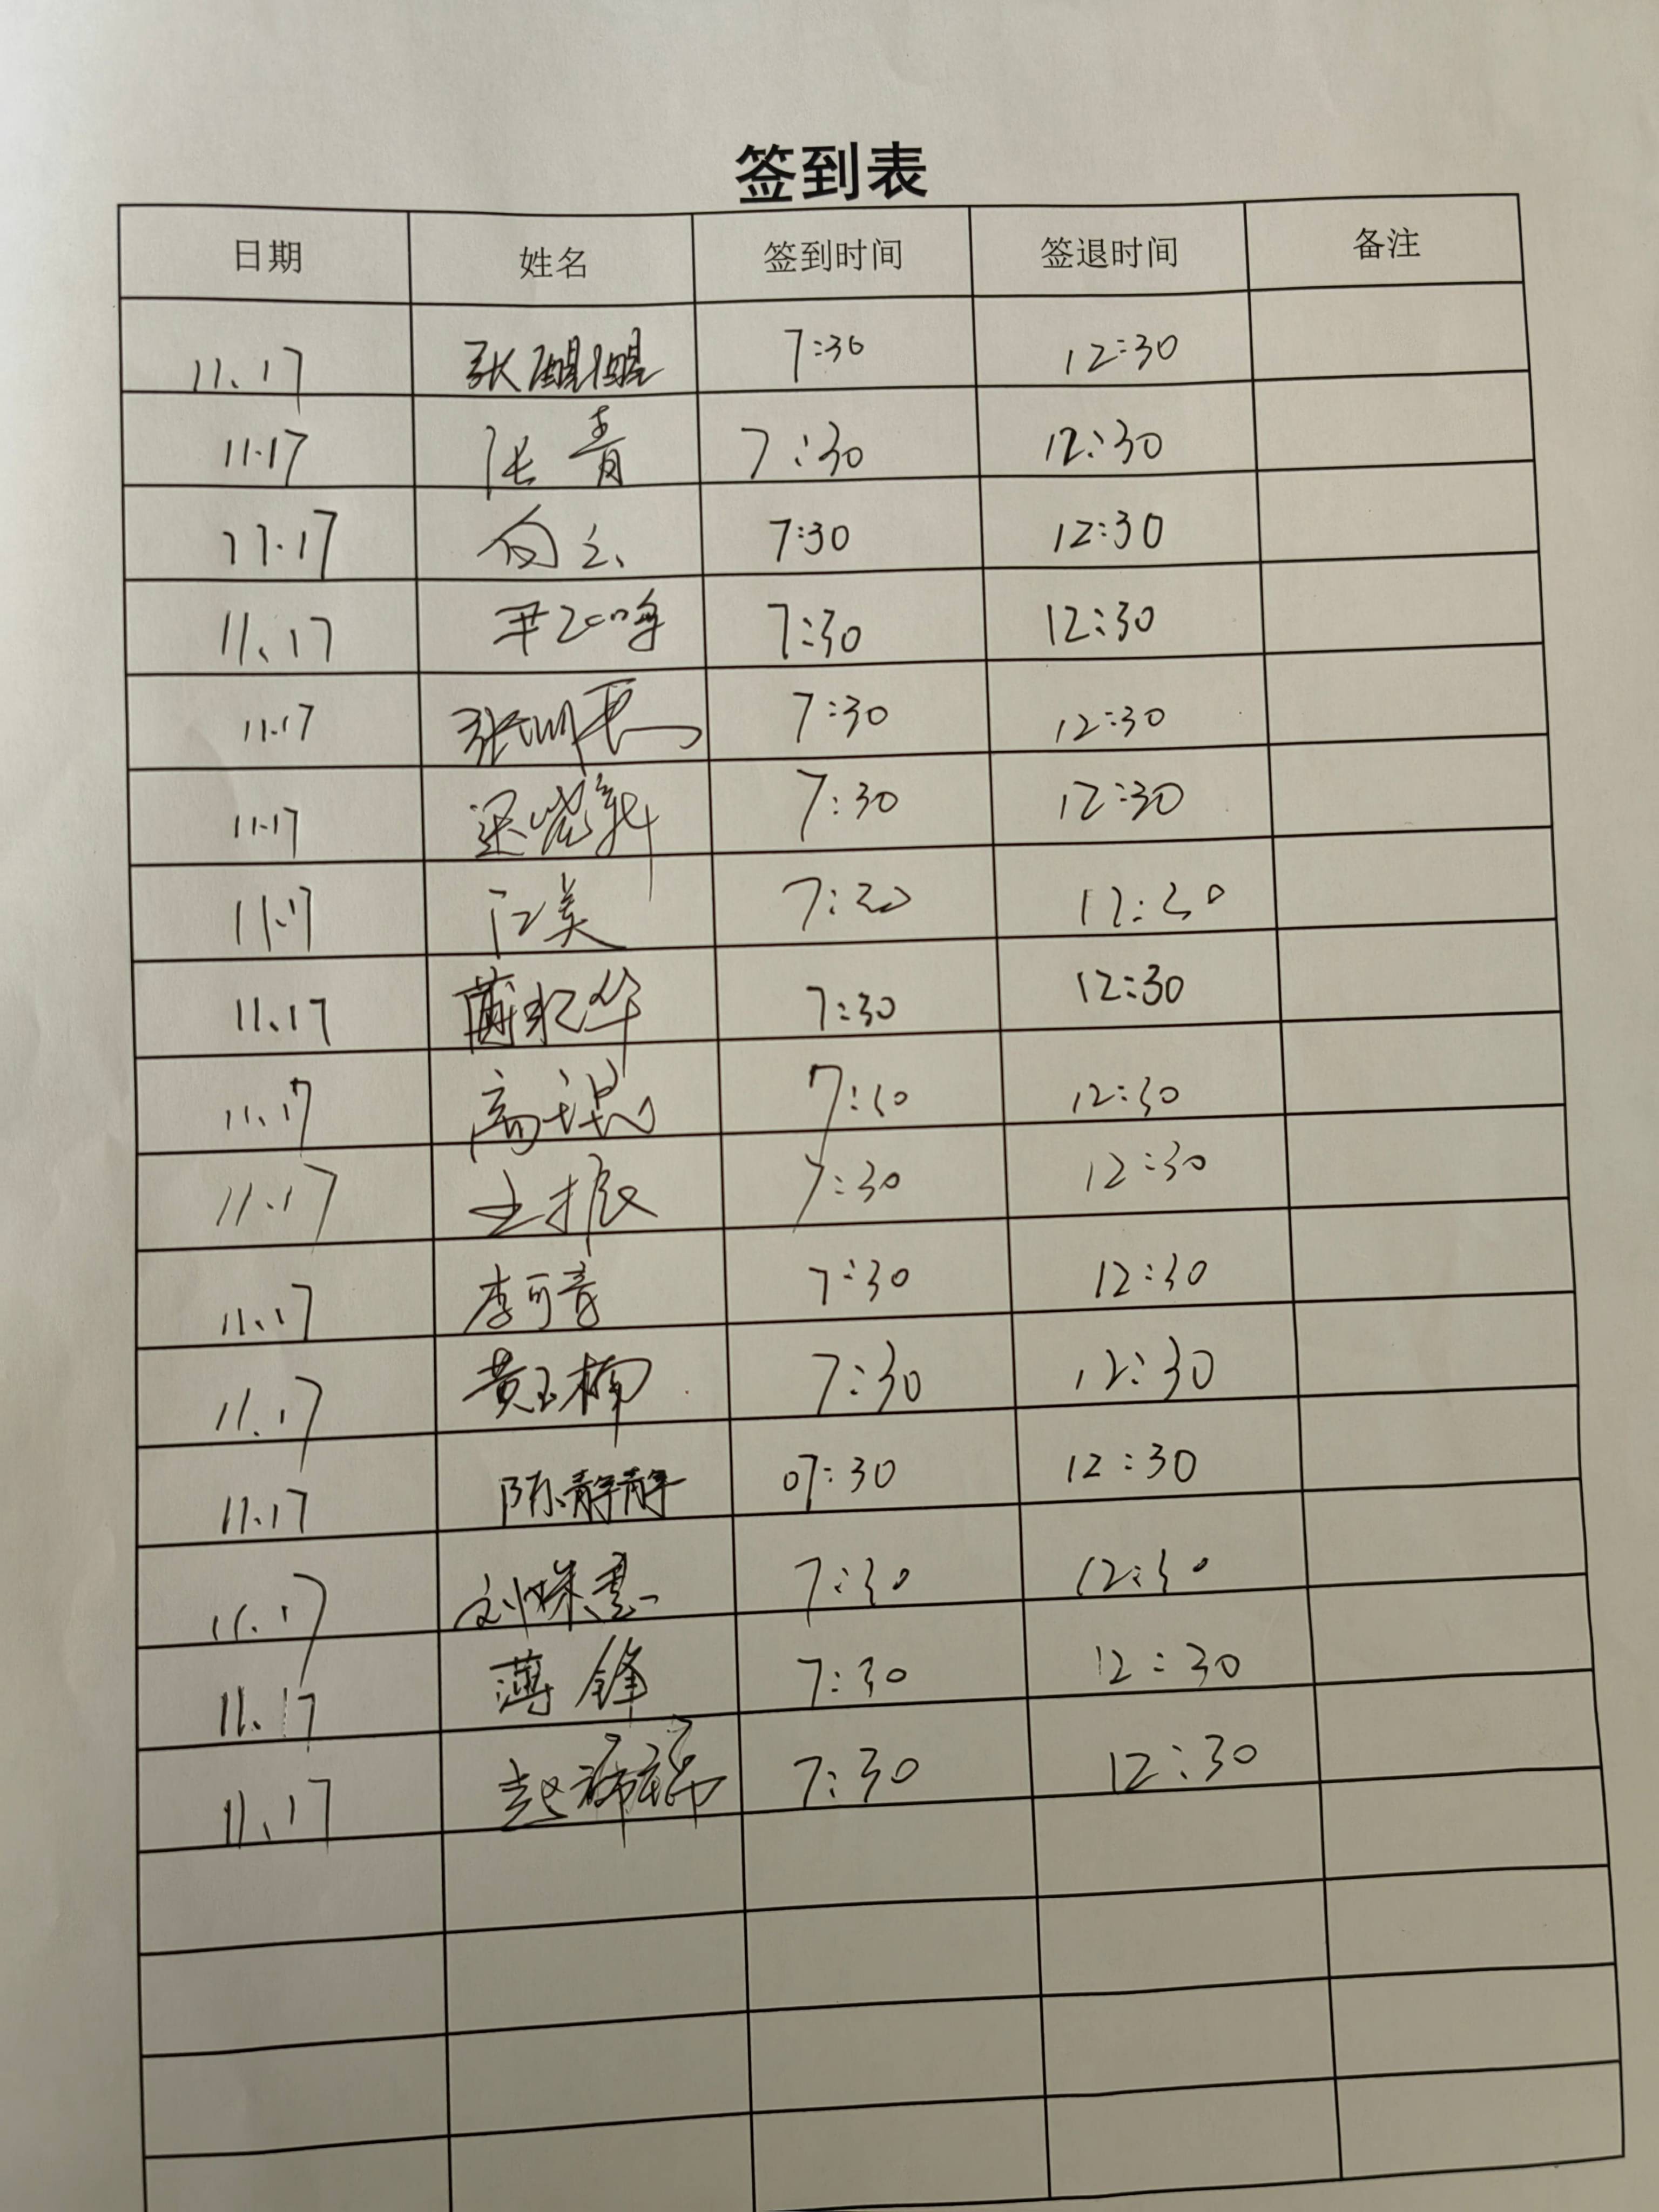 签到表
日期 姓名 签到时间 签退时间 备注
11.17 7:30 12:30
11.17 张青 7:30 12:30
11.17 向云 7:30 12:30
11.17 7:30 12:30
11.17 7:30 12:30
11.17 7:30 12:30
11.17 江美 7:30 12:30
11.17 蒲永华 7:30 12:30
11.17 高琨 7:30 12:30
11.17 王振 7:30 12:30
11.17 李可音 7:30 12:30
11.17 黄玉楠 7:30 12:30
11.17 陈静静 07:30 12:30
11.17 7:30 12:30
11.17 薄锋 7:30 12:30
11.17 赵 7:30 12:30